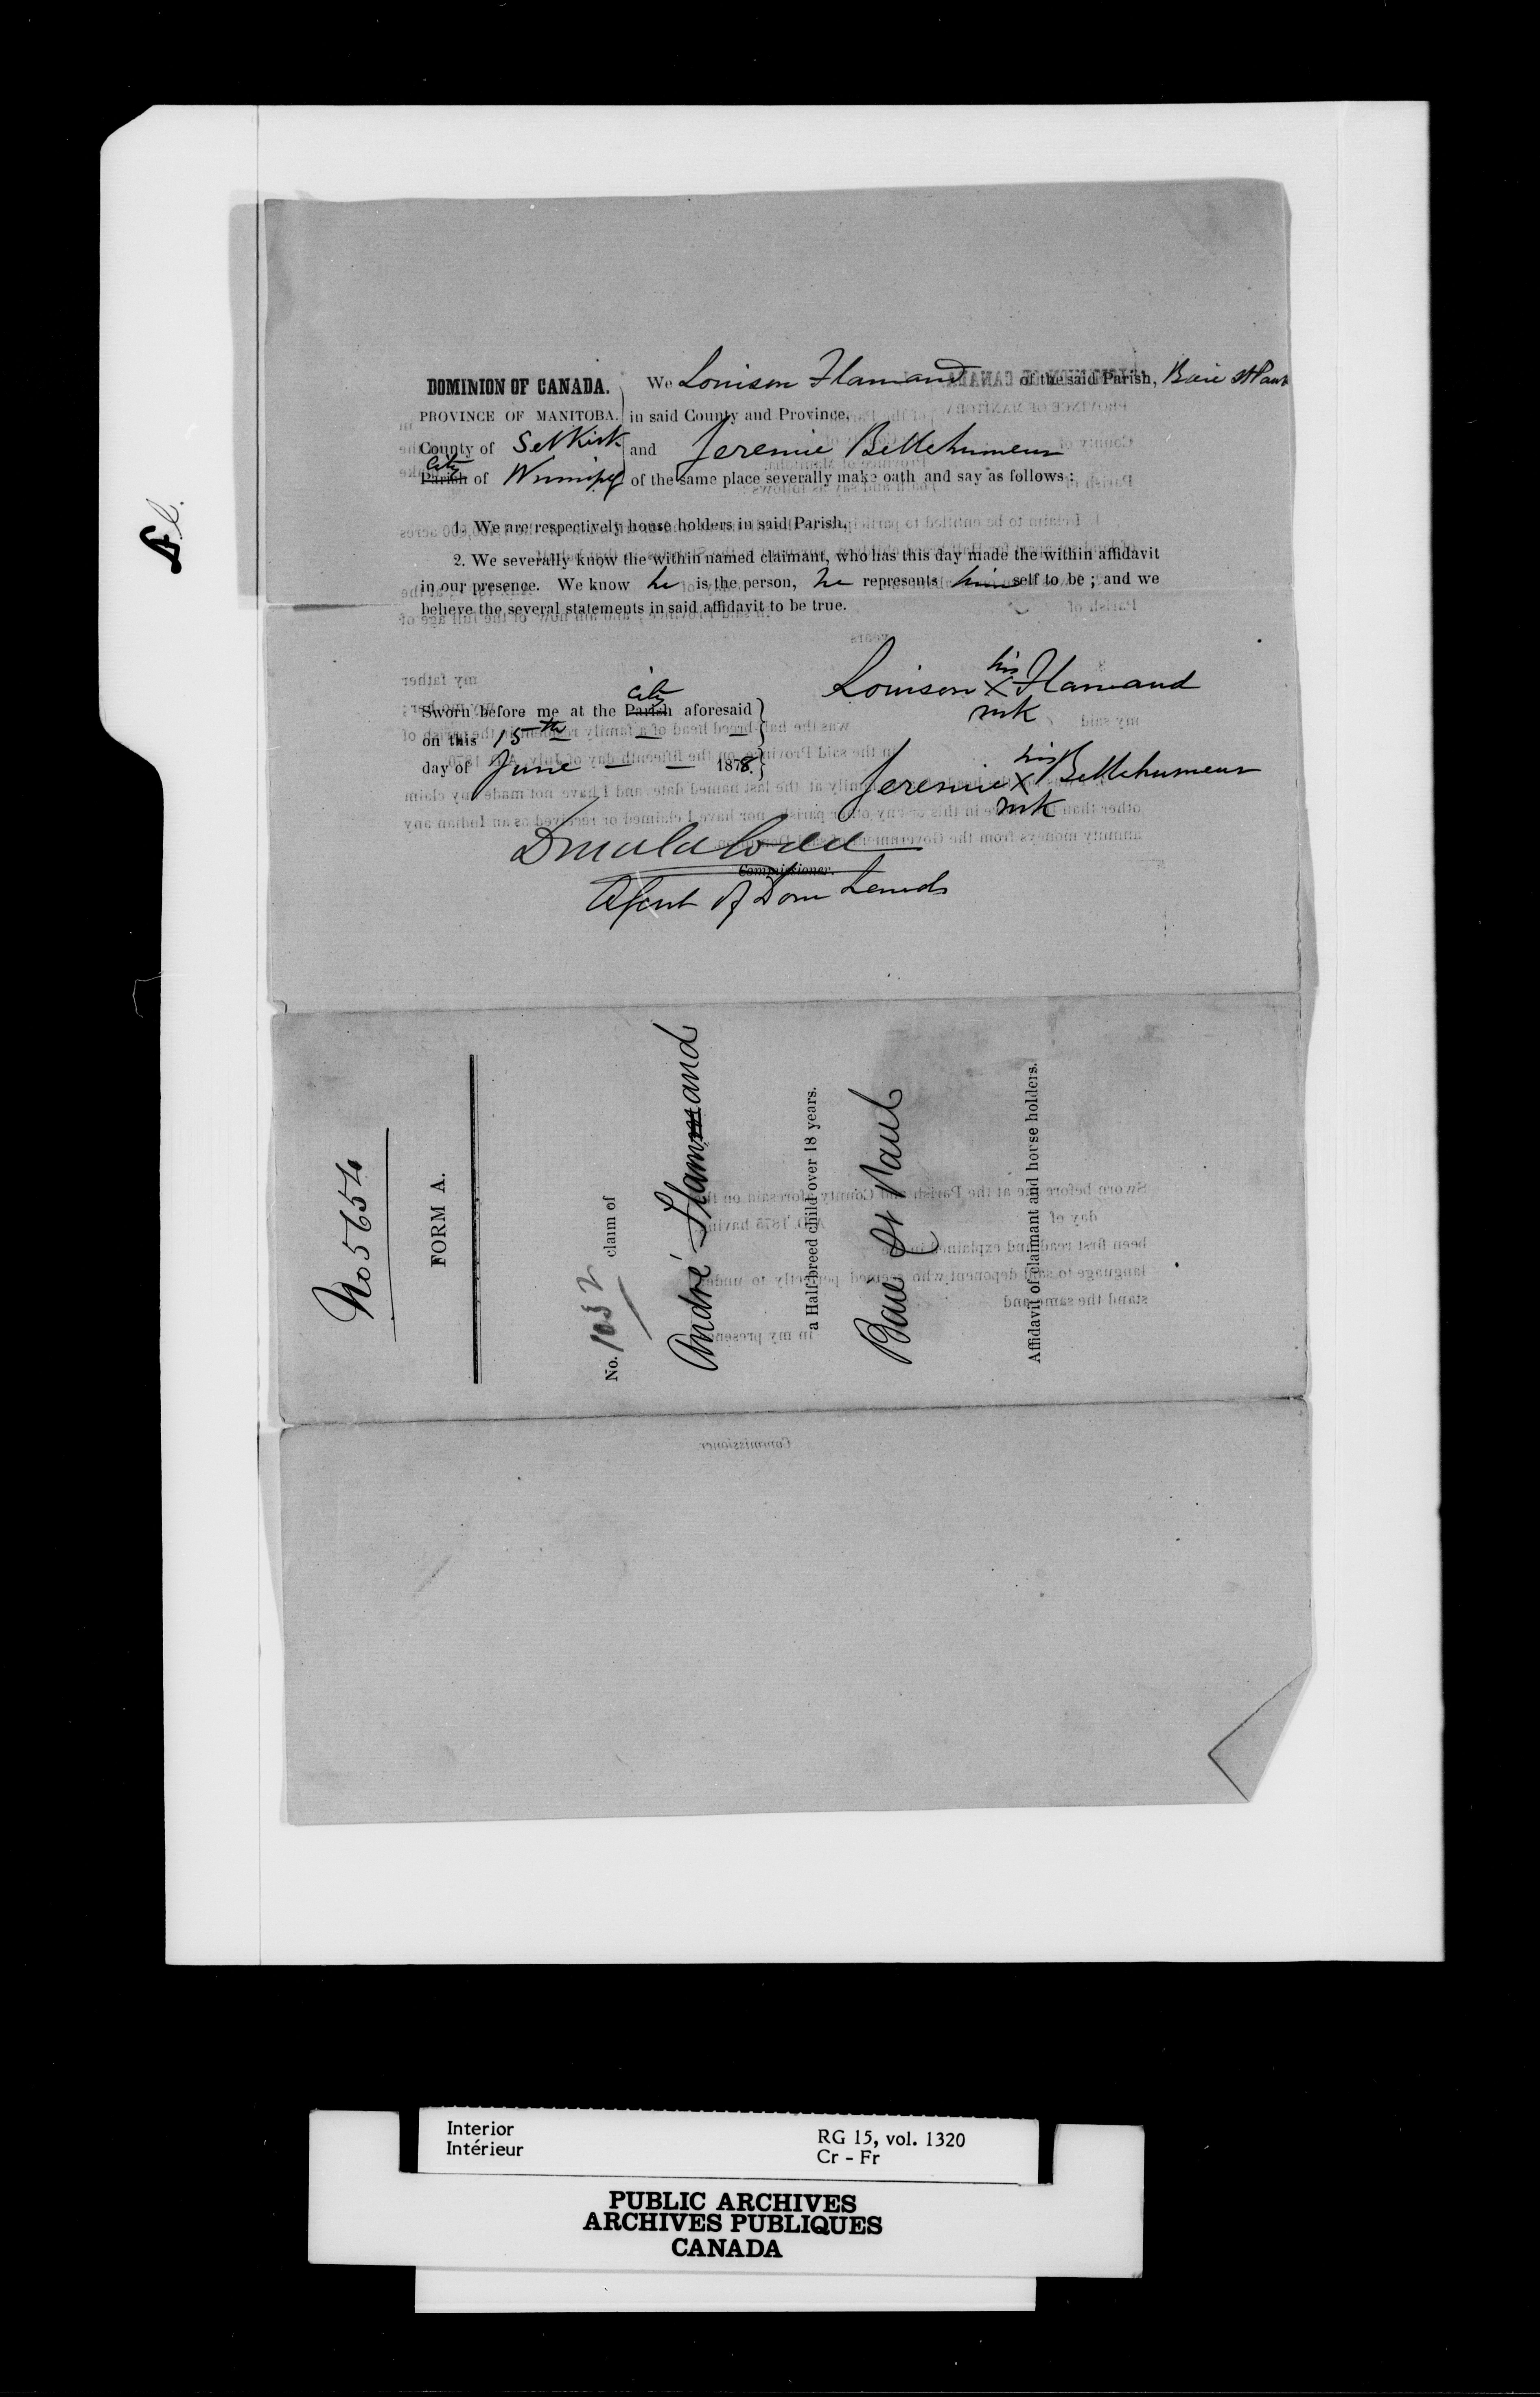 DOMINION OF CANADA. We Louison Flamand of the said Parish, Baie St Paul
PROVINCE OF MANITOBA. in said County and Province,
County of Selkirk and Jeremie Bellehumeur
city
Parish of Winnipeg of the same place severally make oath and say as follows :
1. We are respectively house holders in said Parish,
2. We severally know the within named claimant, who has this day made the within affidavit
in our presence. We know he is the person, he represents himself to be ; and we
believe the several statements in said affidavit to be true.
his
Louison X Flamand
mk
city
Sworn before me at the Parish aforesaid
on this 15th
day of June 1878.
his
Jeremie X Bellehumeur
mk
Donald Codd
Commissioner.
Agent of Dom Lands
No 5654
FORM A.
No. 1032 claim of
André Flammand
a Half-breed child over 18 years.
Baie St Paul
Affidavit of claimant and house holders.
Commissioner
Interior
Intérieur
RG 15, vol. 1320
Cr - Fr
PUBLIC ARCHIVES
ARCHIVES PUBLIQUES
CANADA